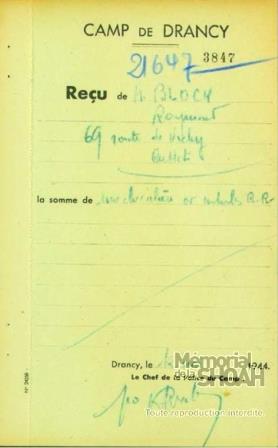 CAMP DE DRANCY
21647 3847
Reçu de M BLOCH
Raymond
69 route de Vichy
Cusset
la somme de une chevalière or initiales R.B.
Drancy, le 1944.
Le Chef de la Police du Camp
Mémorial
de la SHOAH
Toute reproduction interdite